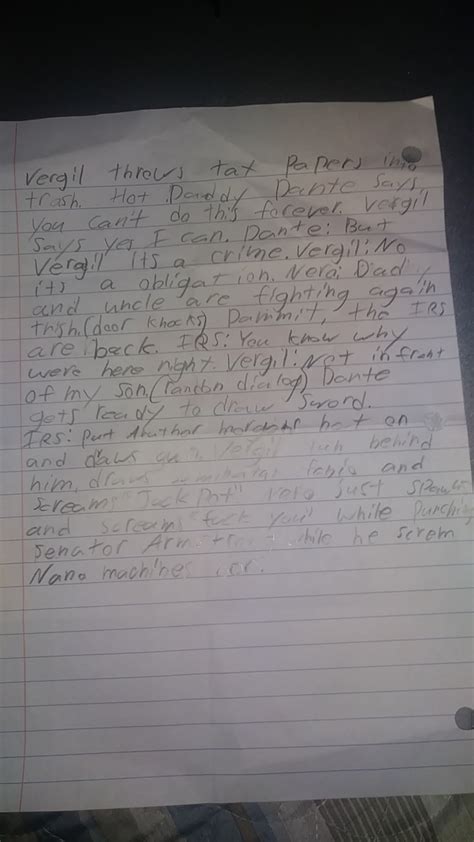 Vergil throws tax papers into
trash. Hot Daddy Dante says
you can't do this forever. Vergil
says yes I can. Dante: But
Vergil its a crime. Vergil: No
its a obligation. Nero: Dad
and uncle are fighting again
trish. (door knocks) Dammit, the IRS
are back. IRS: You know why
were here night. Vergil: Not infront
of my son. (random dialog) Dante
gets ready to draw sword.
IRS: put another hot on
and draws Vergil behind
him, draws and
screams "Jack Pot" Nero just spawns
and screams "fuck you" while punching
senator Armstrong while he scrom
Nano machines